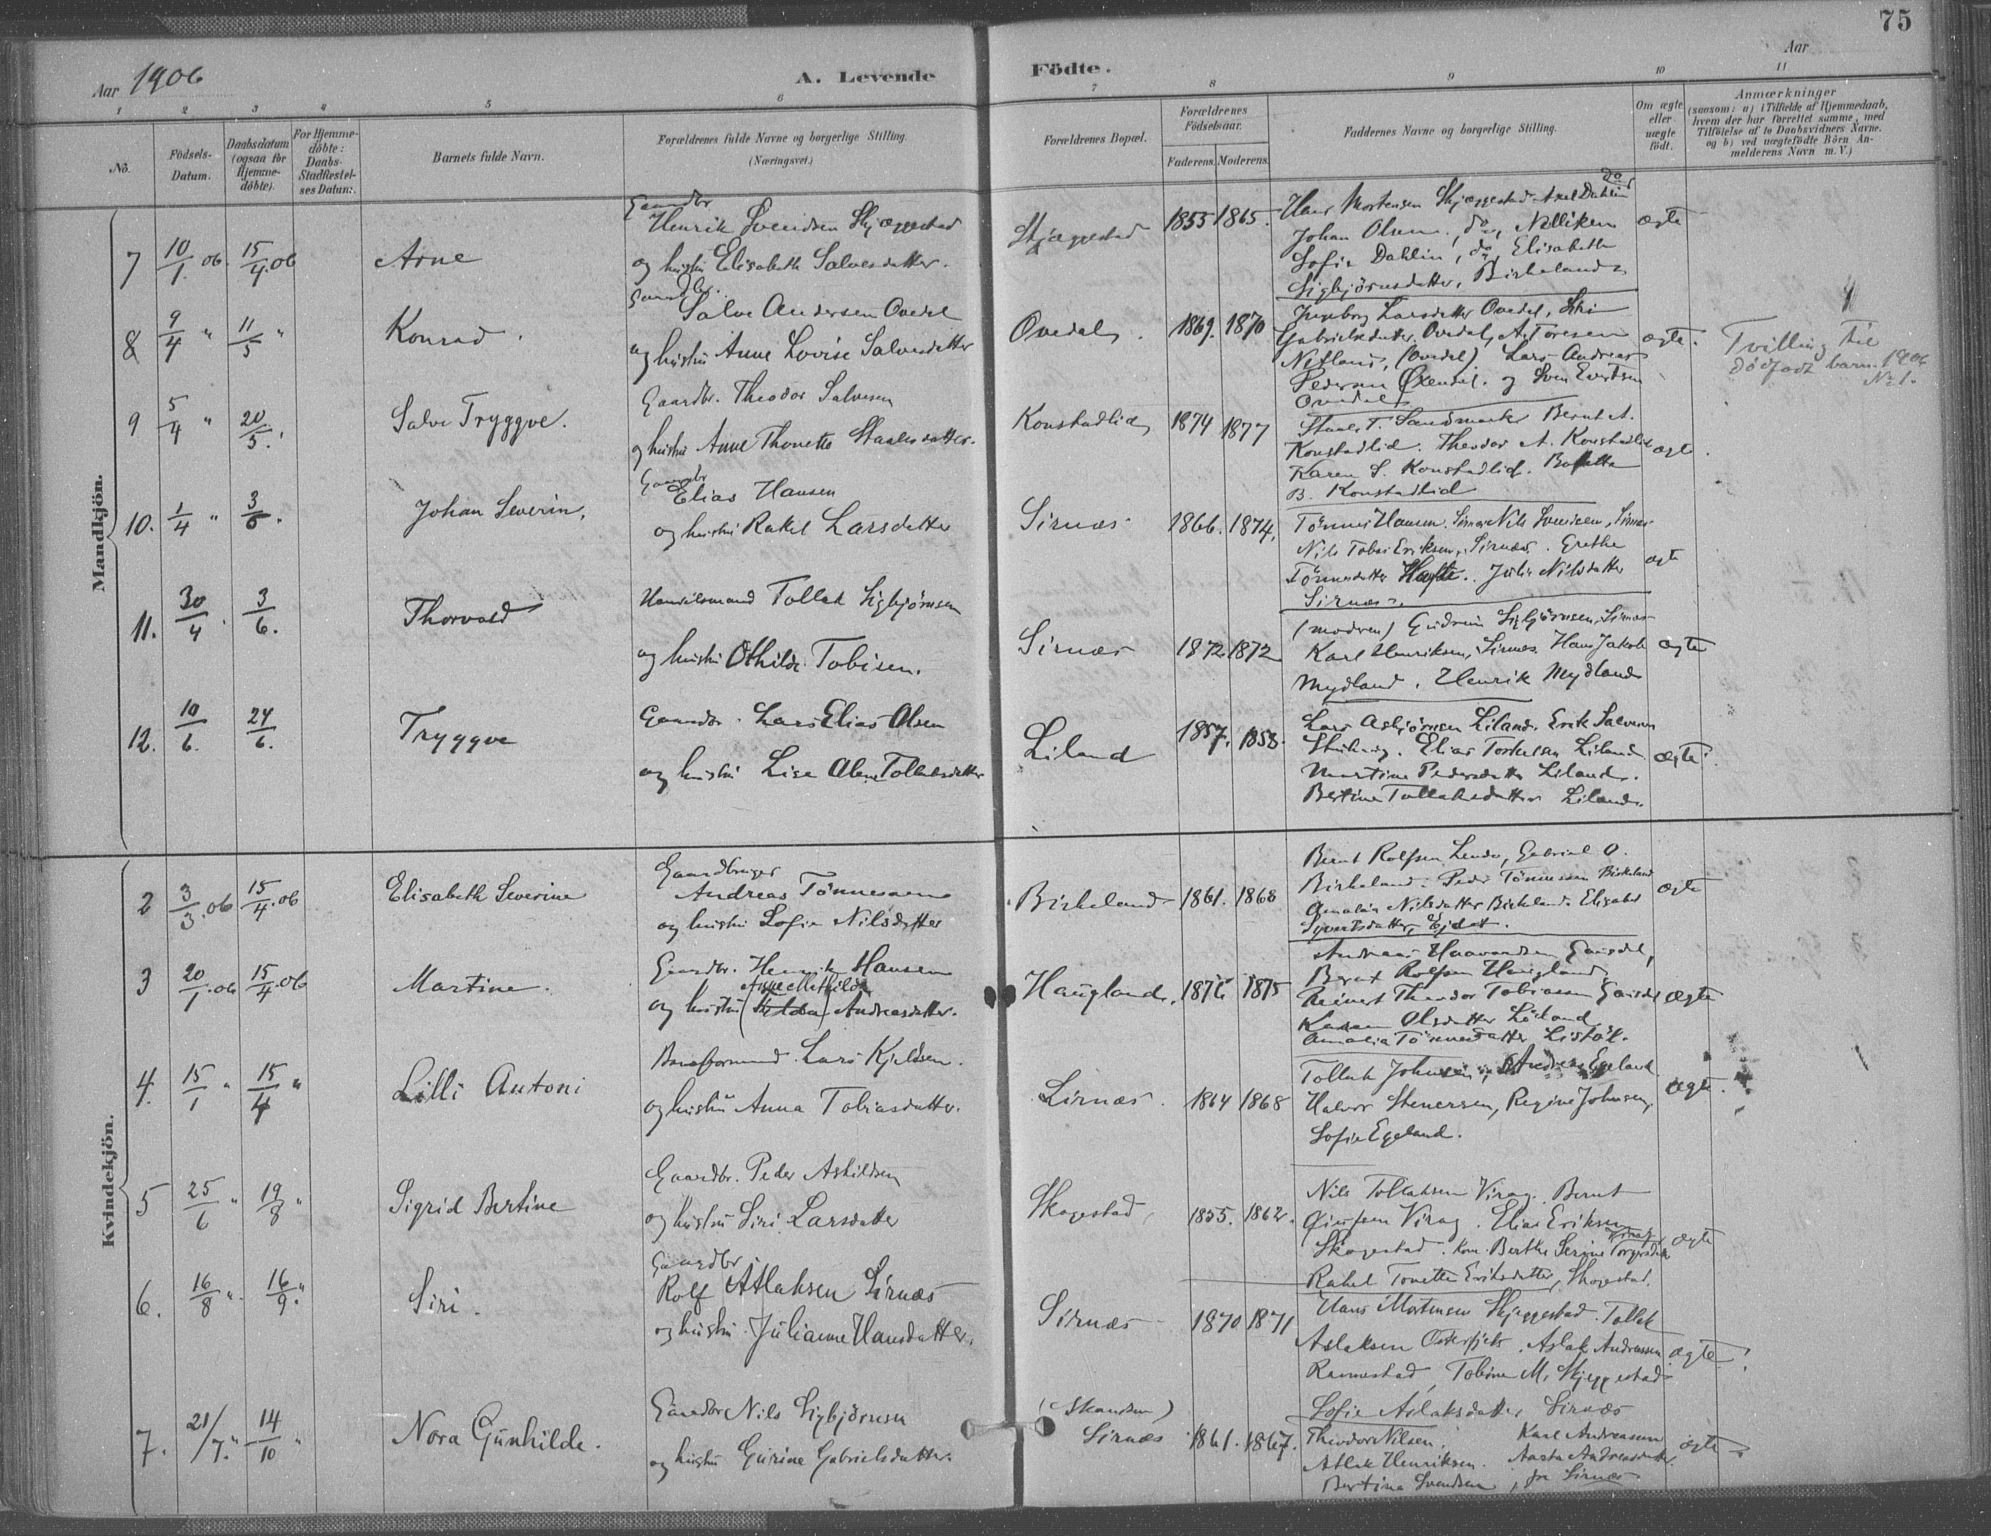 75
Aar 1906
A. Levende Födte.
Aar
1 2 3 4 5 6 7 8 9 10 11
No.
Födsels-Datum.
Daabsdatum (ogsaa for Hjemme-döbte).
For Hjemme-döbte: Daabs-Stadfestel-ses Datum:.
Barnets fulde Navn.
Forældrenes fulde Navne og borgerlige Stilling.
(Næringsvei.)
Forældrenes Bopæl.
Forældrenes Födselsaar.
Faderens. Moderens.
Faddernes Navne og borgerlige Stilling.
Om ægte eller uægte födt.
Anmærkninger
(saasom: a) i Tilfælde af Hjemmedaab, hvem der har forrettet samme, med Tilföielse af to Daabsvidners Navne. og b) ved uægtefödte Börn An-melderens Navn m. V.)
Mandkjön.
7 10/1 06. 15/4 06 Arne
Gaardbr
Henrik Svendsen Skjæggestad
og hustru Elisabeth Salvesdatter.
Skjæggestad 1855 1865.
Hans Mortensen Skjeggestad Axel Dahlin do
Johan Olsen, do, Nelliken
Sofie Dahlin, do, Elisabeth
Sigbjörnsdatter, Birkeland
ægte
8 9/4 " 11/5 " Konrad.
Gaardbr.
Salve Andersen Ovedal
og hustru Anne Lovise Salvesdatter
Ovedal. 1869. 1870
Ingeborg Larsdatter Ovedal, Siri
Gabrielsdatter Ovedal, A. Toresen
Netland, (Ovedal) Lars Andreas
Pedersen Øxendal. og Sven Evertsen
Ovedal
ægte.
Tvilling til
dödfödt barn 1906
No 1.
9 5/4 " 20/5. Salve Tryggve.
Gaardbr. Theodor Salvesen
og hustru Anne Thonette Staalesdatter.
Konstadlid 1874 1877
Staale T. Sandmark Bernt A.
Konstadlid. Theodor A. Konstadlid
Karen S. Konstadlid.
B. Konstadlid
ægte.
10. 1/4 " 3/6. Johan Severin.
Gaardbr
Elias Hansen
og hustru Rakel Larsdatter
Sirnæs 1866. 1874.
Tönnes Hansen Sirnæs Nils Svendsen, Sirnæs
Nils Tobias Eriksen, Sirnæs. Grethe
Tönnesdatter. Julie Nilsdatter
Sirnæs.
ægte
11. 30/4. 3/6. Thorvald
Handelsmand Tollak Sigbjörnsen
og hustru Othilde Tobisen.
Sirnæs 1872 1872
(modren) Gudrun Sigbjörnsen, Sirnæs
Karl Henriksen, Sirnæs. Hans Jakob
Mydland. Henrik Mydland
ægte
12. 10/6. 24/6. Tryggve
Gaardbr. Lars Elias Olsen
og hustru Lise Tollaksdatter
Liland 1857. 1858.
Lars Asbjörnsen Liland. Erik Salvesen
Elias Torkelsen Liland
Martine Pedersdatter Liland.
Bertine Tollaksdatter Liland.
ægte.
Kvindekjön.
2 3/3. 06 15/4. 06 Elisabeth Severine
Gaardbruger
Andreas Tönnesen
og hustru Sofie Nilsdatter
Birkeland 1861. 1868
Bernt Rolfsen Lende, Gabriel O.
Birkeland. Peder Tönnessen Birkeland
Amalia Nilsdatter Birkeland. Elisabet
Syvertsdatter, Ejdet.
ægte
3 20/1. 06 15/4. 06 Martine.
Gaardbr. Henrik Hansen
Anne Mathilde
og hustru (Hilda) Andreasdatter.
Haugland. 1876 1875
Andreas Haavardsen
Bernt Rolfsen Haugland
Reinert Theodor Tobiassen
Karen Olsdatter Liland
Amalia Tönnesdatter Listöl.
ægte
4. 15/1 " 15/4 " Lilli Antoni
Baneformand Lars Kjeldsen.
og hustru Anna Tobiasdatter.
Sirnæs. 1864 1868
Tollak Johnsen, Andreas Egeland
Halvor Stenersen, Regine Johnsen,
Sofie Egeland.
ægte.
5 25/6 " 19/8 " Sigrid Bertine
Gaardbr. Peder Askildsen
og hustru Siri Larsdatter
Skogestad, 1855. 1862.
Nils Tollaksen Virag. Bernt
Virag. Elias Eriksen
Skogestad. Kone Berthe Serine Torgersdatter Virag
Rakel Tonette Eriksdatter, Skogestad.
ægte
6. 16/8 ". 16/9." Siri.
Gaardbr
Rolf Atlaksen Sirnæs
og hustru. Julianne Hansdatter.
Sirnæs 1870 1871
Hans Mortensen Skjeggestad. Tollak
Aslaksen Osterfjeld. Aslak Andreassen
Ramnestad, Tobine M. Skjeggestad
Sofie Aslaksdatter Sirnæs
ægte
7. 21/7." 14/10 " Nora Gunhilde.
Gaardbr Nils Sigbjörnsen
og hustru Gurine Gabrielsdatter.
(Skandsen)
Sirnæs 1861. 1867.
Theodor Nilsen. Karl Andreasen
Atlak Henriksen. Aasta Andreasdatter
Bertine Svendsen, fra Sirnæs
ægte